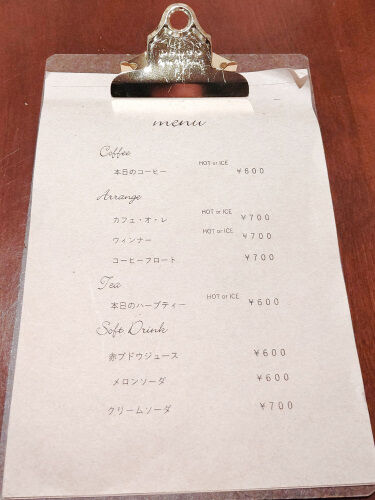 menu
Coffee
本日のコーヒー HOT or ICE ¥600
Arrange
カフェ・オ・レ HOT or ICE ¥700
ウィンナー HOT or ICE ¥700
コーヒーフロート ¥700
Tea
本日のハーブティー HOT or ICE ¥600
Soft Drink
赤ブドウジュース ¥600
メロンソーダ ¥600
クリームソーダ ¥700